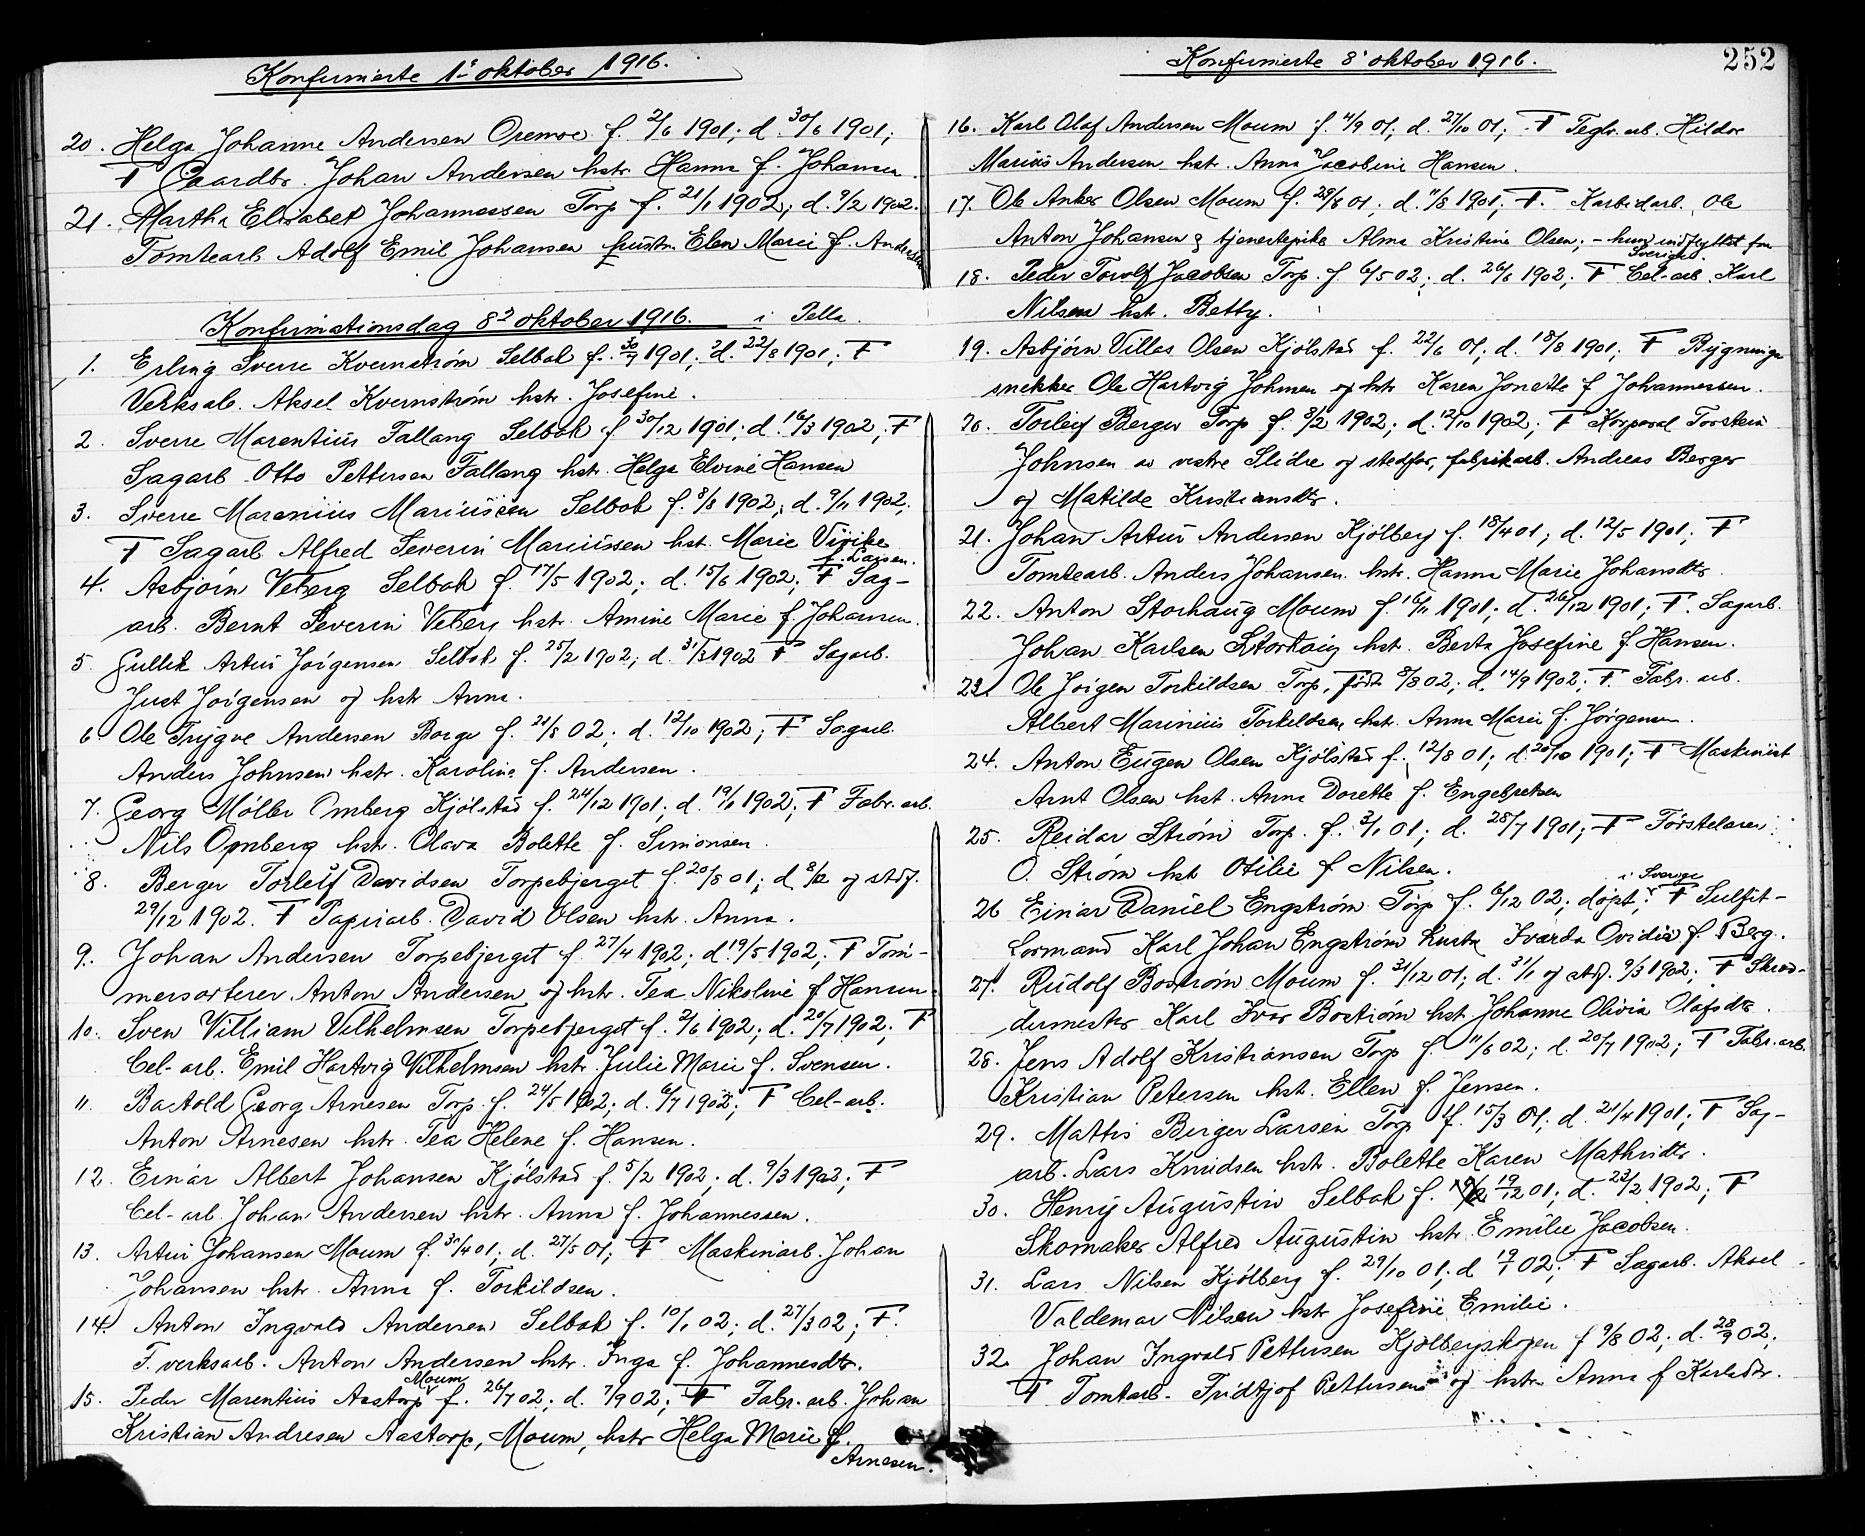 Konfirmerte 1ᵉ oktober 1916.
20. Helga Johanne Andersen Oremoe f. 2/6 1901; d. 30/6 1901;
F Gaardbr. Johan Andersen hstr. Hanna f. Johansen.
21. Martha Elisabet Johannessen Torp f. 21/1 1902; d. 9/2 1902.
Tomtearb. Adolf Emil Johansen hustru Elen Marie f. Andersen
Konfirmationsdag 8ᵈ oktober 1916. i Pella.
1. Erling Sverre Kvernstrøm Selbak f. 30/7 1901; d. 22/8 1901; F
Verksarb. Aksel Kvernstrøm hstr. Josefine.
2. Sverre Marentius Tallang Selbak f. 30/12 1901; d. 16/3 1902; F
Sagarb. Otto Pettersen Tallang hstr. Helga Elvine Hansen
3. Sverre Marenius Mariussen Selbak f. 8/8 1902; d. 9/11 1902;
F Sagarb. Alfred Severin Mariussen hst. Marie Virike
f. Larsen.
4. Asbjørn Veberg Selbak f. 17/5 1902; d. 15/6 1902; F Sag-
arb. Bernt Severin Veberg hstr. Amine Marie f. Johansen.
5. Gullik Artur Jørgensen Selbak f. 25/2 1902; d. 31/3 1902 F. Sagarb.
Just Jørgensen og hstr Anna.
6. Ole Trygve Andersen Borge f. 21/8 02; d. 12/10 1902; F Sagarb.
Anders Johnsen hstr. Karoline f. Andersen.
7. Georg Møller Omberg Kjølstad f. 24/12 1901; d. 19/1 1902; F Fabr. arb.
Nils Omberg hstr. Olava Bolette f. Simonsen.
8. Berger Torleif Davidsen Torpebjerget f. 20/8 01; d. 8/12 og stdf.
29/12 1902. F Papirarb. David Olsen hstr. Anna.
9. Johan Andersen Torpebjerget f. 27/4 1902; d. 19/5 1902; F Tøm-
mersorterer Anton Andersen og hstr. Tea Nikoline f Hansen
10. Sven Villiam Vilhelmsen Torpebjerget f. 2/6 1902; d. 20/7 1902; F
Cel- arb. Emil Hartvig Vilhelmsen hstr. Julie Marie f. Svensen.
11. Bartold Georg Arnesen Torp f. 24/5 1902; d. 6/7 1902; F Cel-arb.
Anton Arnesen hstr. Tea Helene f. Hansen.
12. Einar Albert Johansen Kjølstad f. 5/2 1902; d. 9/3 1902; F
Cel- arb. Johan Andersen hstr. Anna f. Johannessen.
13. Artur Johansen Moum f. 30/4 01; d. 27/5 01; F Maskinarb. Johan
Johansen hstr. Anna f. Torkildsen.
14. Anton Ingvald Andersen Selbak f. 10/1 02; d. 27/3 02; F.
T. verksarb. Anton Andersen hstr. Inga f. Johannesdtr.
Moum
15. Peder Marentius Aastorp f. 26/7 02; d. 7/9 02; F Fabr. arb. Johan
Kristian Andresen Aastorp, Moum, hstr Helga Marie f.
Arnesen.
Konfirmerte 8' oktober 1916.
252
16. Karl Olaf Andersen Moum f. 4/9 01; d. 27/10 01; F Teglv. arb. Hildor
Marius Andersen hst. Anna Jacobine Hansen.
17. Ole Anker Olsen Moum f. 29/6 01; d. 11/8 1901; F. Karbidarb. Ole
Anton Johansen & tjenestepike Alma Kristine Olsen; - hun indflyttet fra
Sverige.
18. Peder Torolf Jacobsen Torp f. 6/5 02; d. 26/6 1902; F Cel-arb. Karl
Nilsen hst. Betty.
19. Asbjørn Villas Olsen Kjølstad f. 22/6 01; d. 18/8 1901; F Bygnings
snekker Ole Hartvig Johnsen og hstr Karen Jonette f Johannessen.
20. Torleif Berger Torp f. 8/2 1902; d. 12/10 1902; F Korporal Torstein
Johnsen av vestre Slidre og stedfar, fabrikarb. Andreas Berger
og Matilde Kristiansdtr.
21. Johan Artur Andersen Kjølberg f. 18/4 01; d. 12/5 1901; F
Tomtearb. Anders Johansen hstr. Hanna Marie Johansdtr.
22. Anton Storhaug Moum f. 16/11 1901; d. 26/12 1901; F. Sagarb.
Johan Karlsen Storhaug hst. Berta Josefine f. Hansen.
23. Ole Jørgen Torkildsen Torp, født 8/8 02; d. 14/9 1902; F. Fabr. arb.
Albert Marinius Torkildsen hst. Anna Marie f. Jørgensen.
24. Anton Eugen Olsen Kjølstad f. 12/8 01; d. 20/10 1901; F Maskinist
Arnt Olsen hst. Anna Dorette f. Engebretsen
25. Reidar Strøm Torp. f. 3/1 01; d. 28/7 1901; F Førstelærer
O. Strøm hst Otilie f Nilsen.
i Sverige
26 Einar Daniel Engstrøm Torp f. 6/12 02; døpt; F Sulfit-
formand Karl Johan Engstrøm hustr Ivarda Ovidia f. Berg.
27. Rudolf Bostrøm Moum f. 31/12 01; d. 31/1 og stdf. 9/3 1902; F Skred-
dermester Karl Ivar Bostrøm hst. Johanne Olivia Olafsdtr.
28. Jens Adolf Kristiansen Torp f. 11/6 02; d. 20/7 1902; F Fabr. arb.
Kristian Petersen hst. Ellen f. Jensen.
29. Mattis Birger Larsen Torp f. 15/3 01; d. 21/4 1901; F Sag-
arb. Lars Knudsen hstr. Bolette Karen Mathisdtr.
30. Henry Augustin Selbak f. 19/12 01; d. 23/2 1902; F
Skomaker Alfred Augustin hstr. Emilie Jacobsen.
31. Lars Nilsen Kjølberg f. 29/10 01; d 19/1 02; F Sagarb. Aksel
Valdemar Nilsen hstr Josefine Emilie.
32. Johan Ingvald Pettersen Kjølbergskogen f 9/8 02; d. 28/9 02;
F Tomtarb. Fridtjof Pettersen og hstr Anna f Karlsdtr.